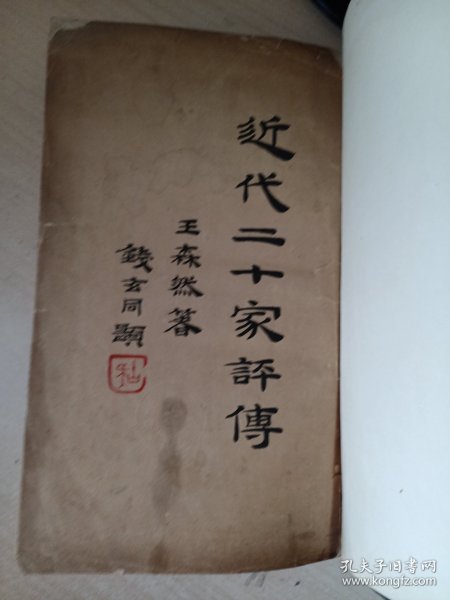 近代二十家評傳
王森然箸
錢玄同題
孔夫子旧书网
www.kongfz.com